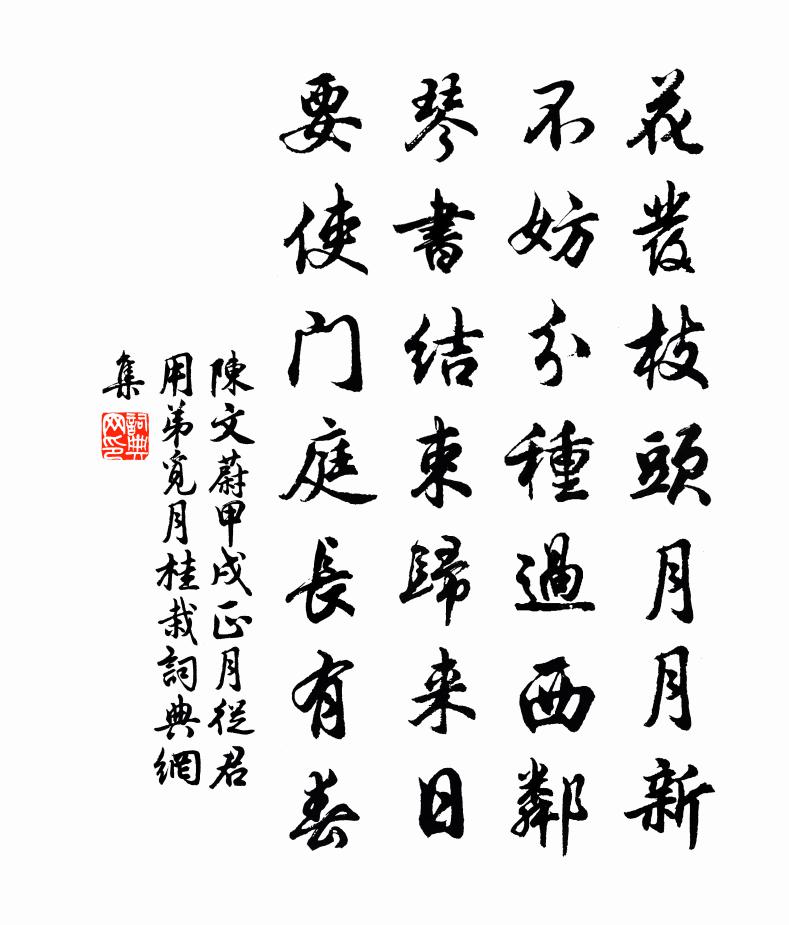 花發枝頭月月新
不妨分種過西鄰
琴書結束歸来日
要使门庭長有春
陳文蔚甲戌正月從君
用弟覓月桂栽詞典網
集
詞典网印